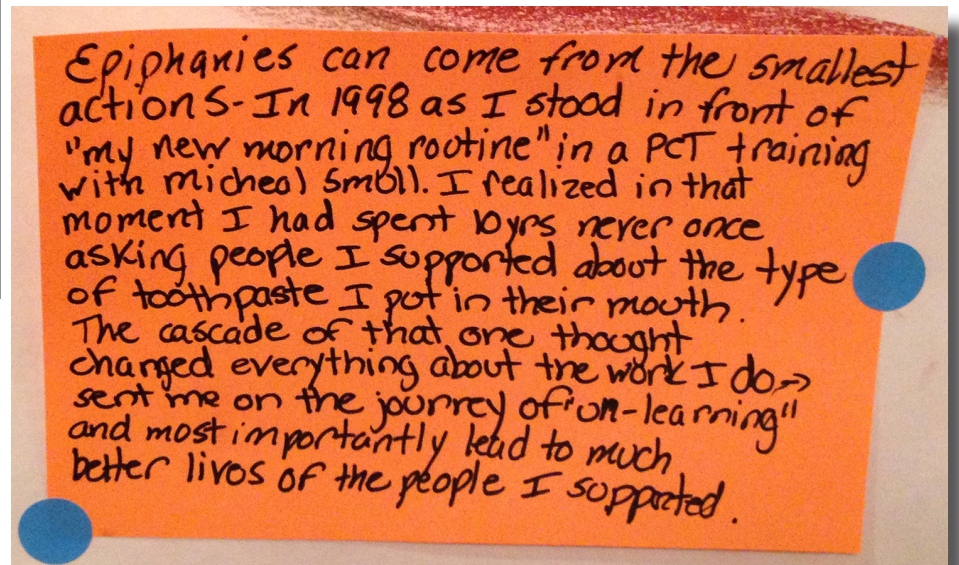 Epiphanies can come from the smallest
actions - In 1998 as I stood in front of
"my new morning routine" in a PCT training
with micheal Smull. I realized in that
moment I had spent 10yrs never once
asking people I supported about the type
of toothpaste I put in their mouth.
The cascade of that one thought
changed everything about the work I do →
sent me on the journey of "un-learning"
and most importantly lead to much
better lives of the people I supported.